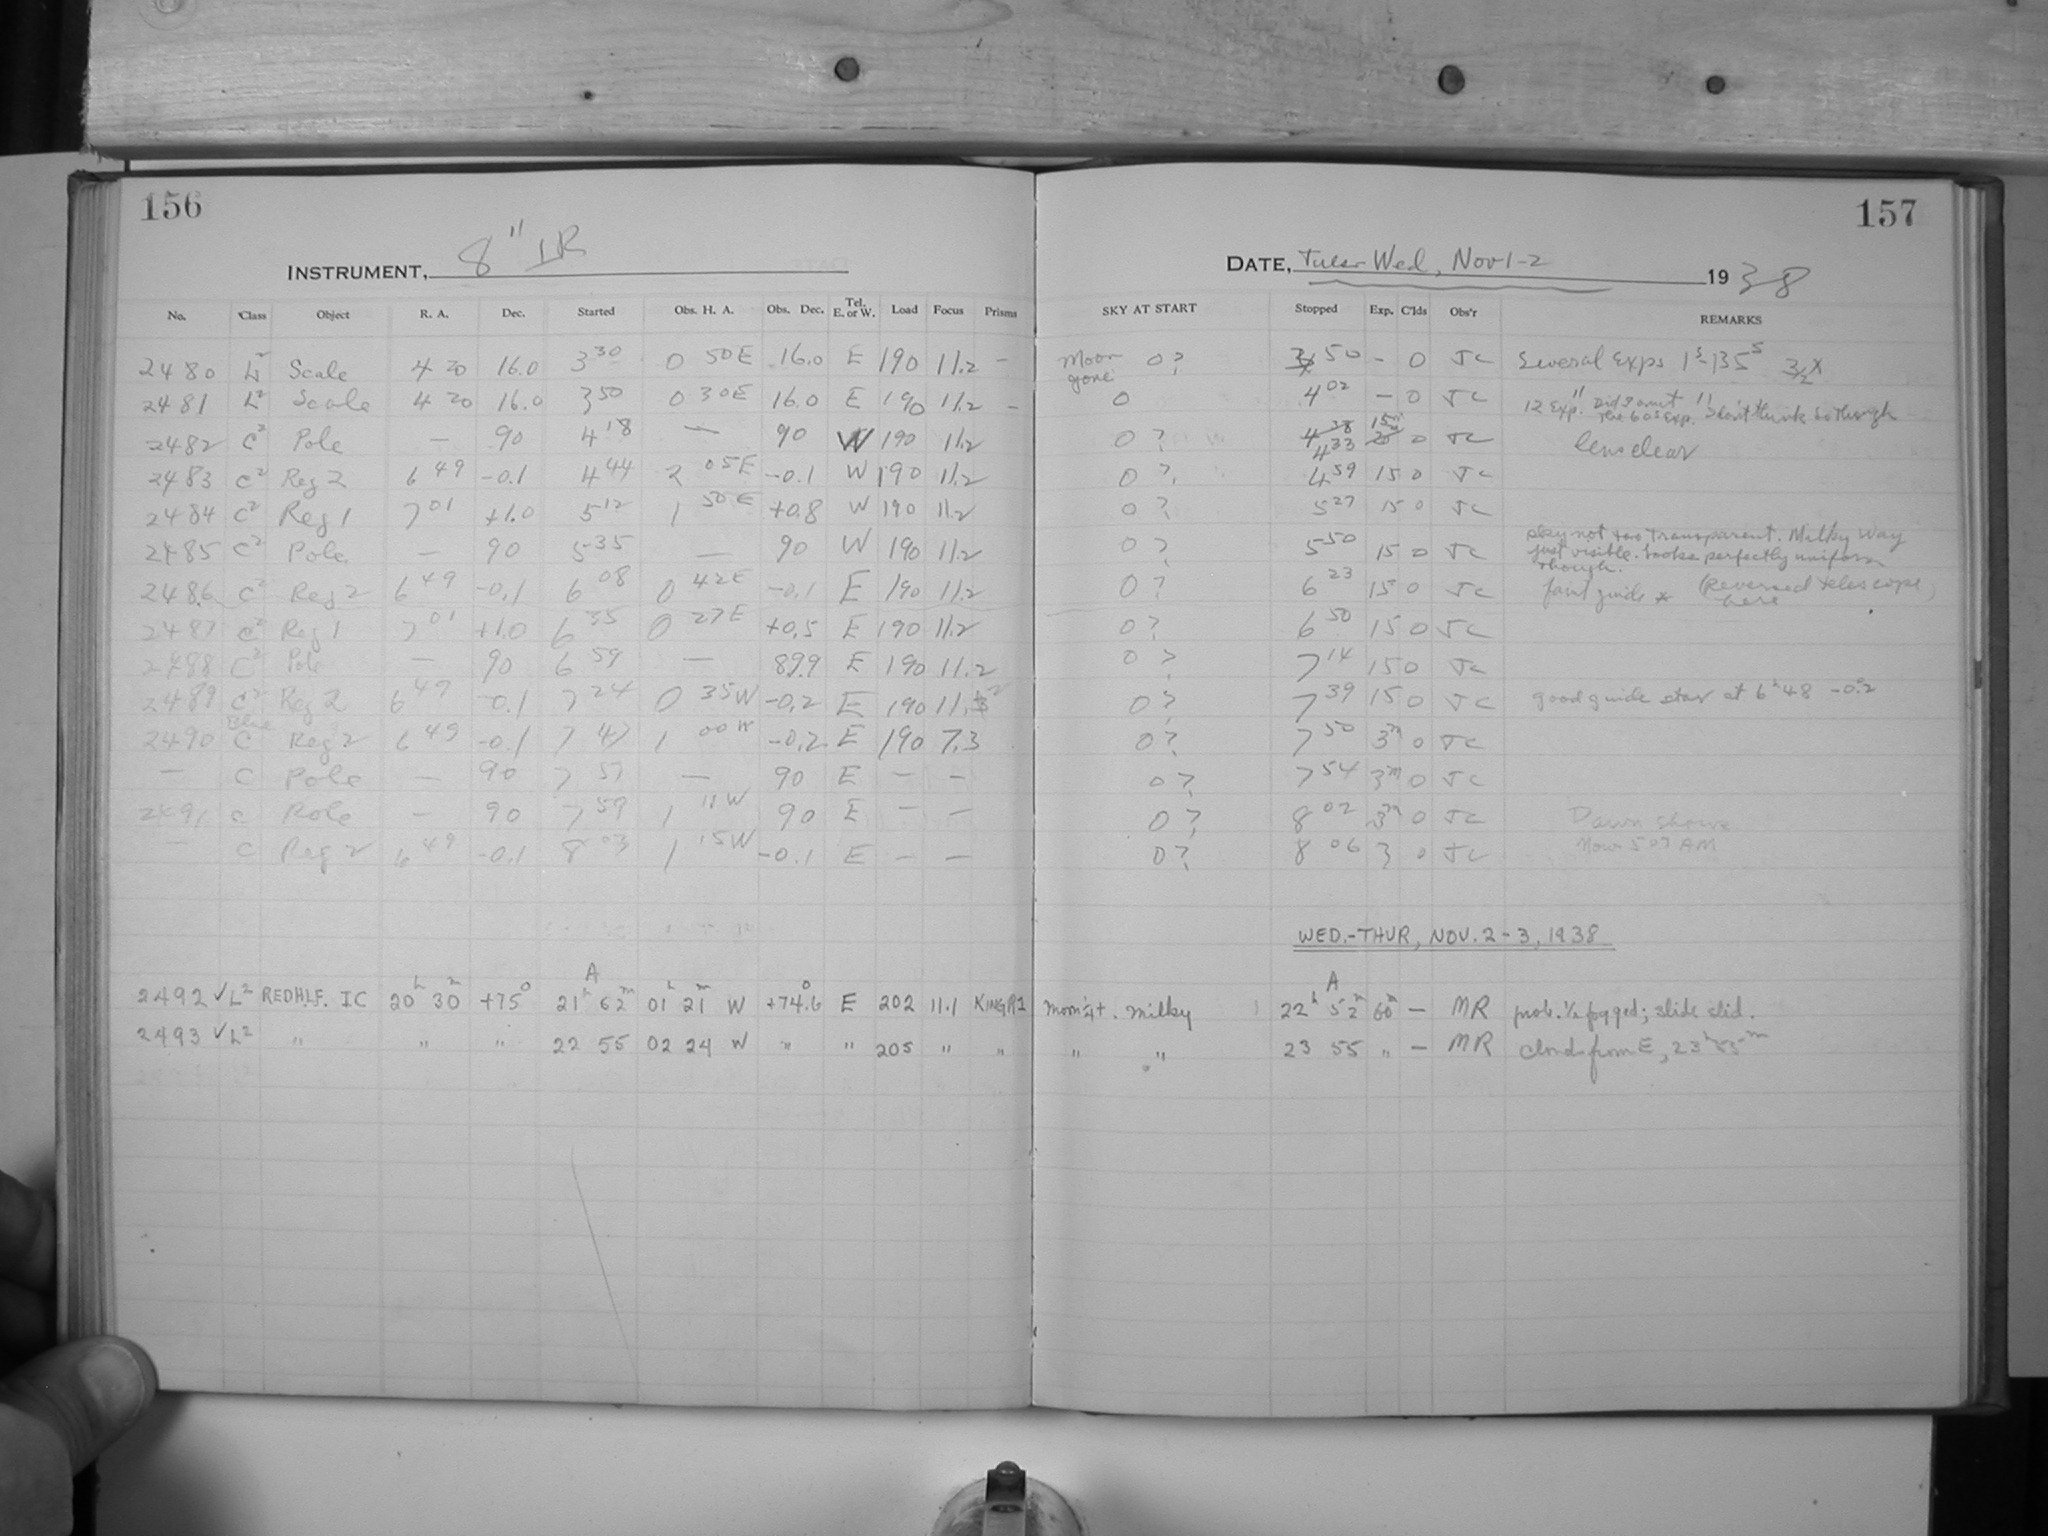 156
157
INSTRUMENT, 8" IR
DATE, Tues-Wed, Nov 1-2 1938
No. Class Object R. A. Dec. Started Obs. H. A. Obs. Dec. Tel. E. or W. Load Focus Prisms SKY AT START Stopped Exp. C'lds Obs'r REMARKS
2480 L² Scale 4 20 16.0 3 30 0 50E 16.0 E 190 11.2 - Moon gone 0? 3 50 - 0 JC Several Exps 1s-135s
2481 L² Scale 4 20 16.0 3 50 0 30E 16.0 E 190 11.2 - 0 4 02 - 0 JC 12 Exp. "Did I omit the 60s Exp." I don't think so though
2482 C² Pole — 90 4 18 — 90 W 190 11.2 0? 4 38 4 33 15m 20 0 JC lens clear
2483 C² Reg 2 6 49 -0.1 4 44 2 05E -0.1 W 190 11.2 0? 4 59 15 0 JC
2484 C² Reg 1 7 01 +1.0 5 12 1 50E +0.8 W 190 11.2 0? 5 27 15 0 JC
2485 C² Pole — 90 5 35 — 90 W 190 11.2 0? 5 50 15 0 JC Sky not too transparent. Milky Way just visible. Looks perfectly uniform though.
2486 C² Reg 2 6 49 -0.1 6 08 0 42E -0.1 E 190 11.2 0? 6 23 15 0 JC faint guide * (Reversed telescope, here
2487 C² Reg 1 7 01 +1.0 6 35 0 27E +0.5 E 190 11.2 0? 6 50 15 0 JC
2488 C² Pole — 90 6 59 — 89.9 E 190 11.2 0? 7 14 15 0 JC
2489 C² Reg 2 6 49 -0.1 7 24 0 35W -0.2 E 190 11.2 0? 7 39 15 0 JC good guide star at 6h48 -0°.2
2490 Blue C Reg 2 6 49 -0.1 7 47 1 00W -0.2 E 190 7.3 0? 7 50 3m 0 JC
— C Pole — 90 7 51 — 90 E — — 0? 7 54 3m 0 JC
2491 C Pole — 90 7 59 1 11W 90 E — — 0? 8 02 3m 0 JC Dawn shows
— C Reg 2 6 49 -0.1 8 03 1 15W -0.1 E — — 0? 8 06 3 0 JC Now 5 07 AM
WED.-THUR, NOV. 2-3, 1938
2492 ✓ L² REDHLF. IC 20h 30m +75° A 21h 62m 01h 21m W +74.6° E 202 11.1 KING R1 Moon:4+. milky A 22h 52m 60m — MR prob. ½ fogged; slide slid.
2493 ✓ L² " " " 22 55 02 24 W " " 205 " " " " 23 55 " — MR clouds from E, 23h 53m